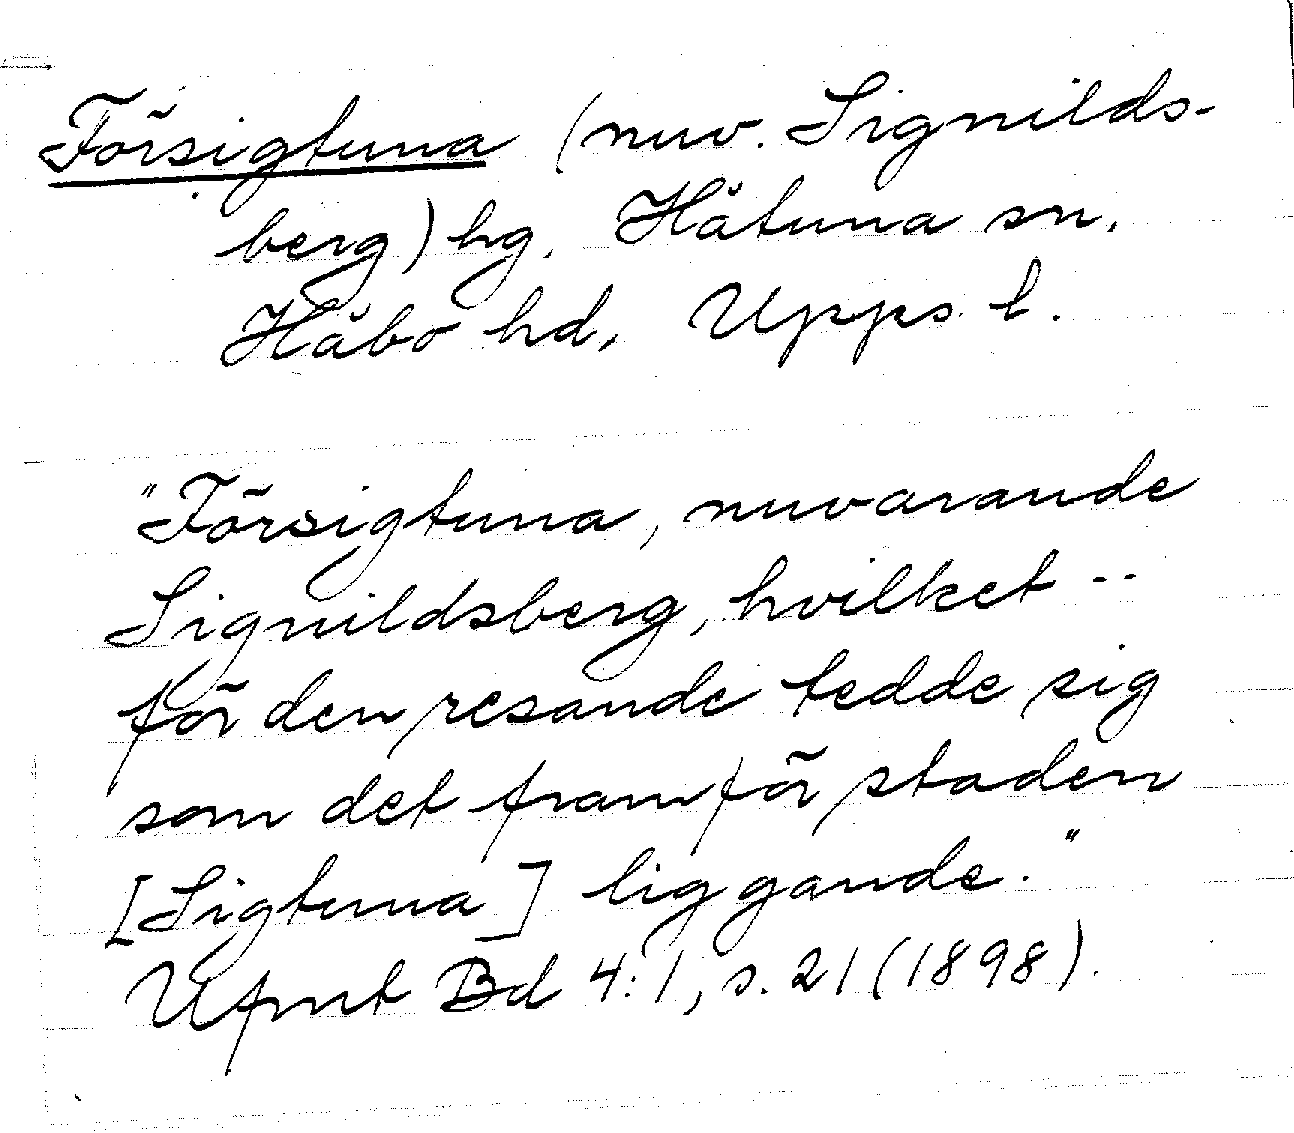 Försigtuna (nuv. Signilds-
berg) hg. Håtuna sn,
Håbo hd, Upps. l.
"Försigtuna, nuvarande
Signildsberg, hvilket --
för den resande tedde sig
som det framför staden
[Sigtuna] liggande."
Ufmt Bd 4:1, s. 21 (1898).